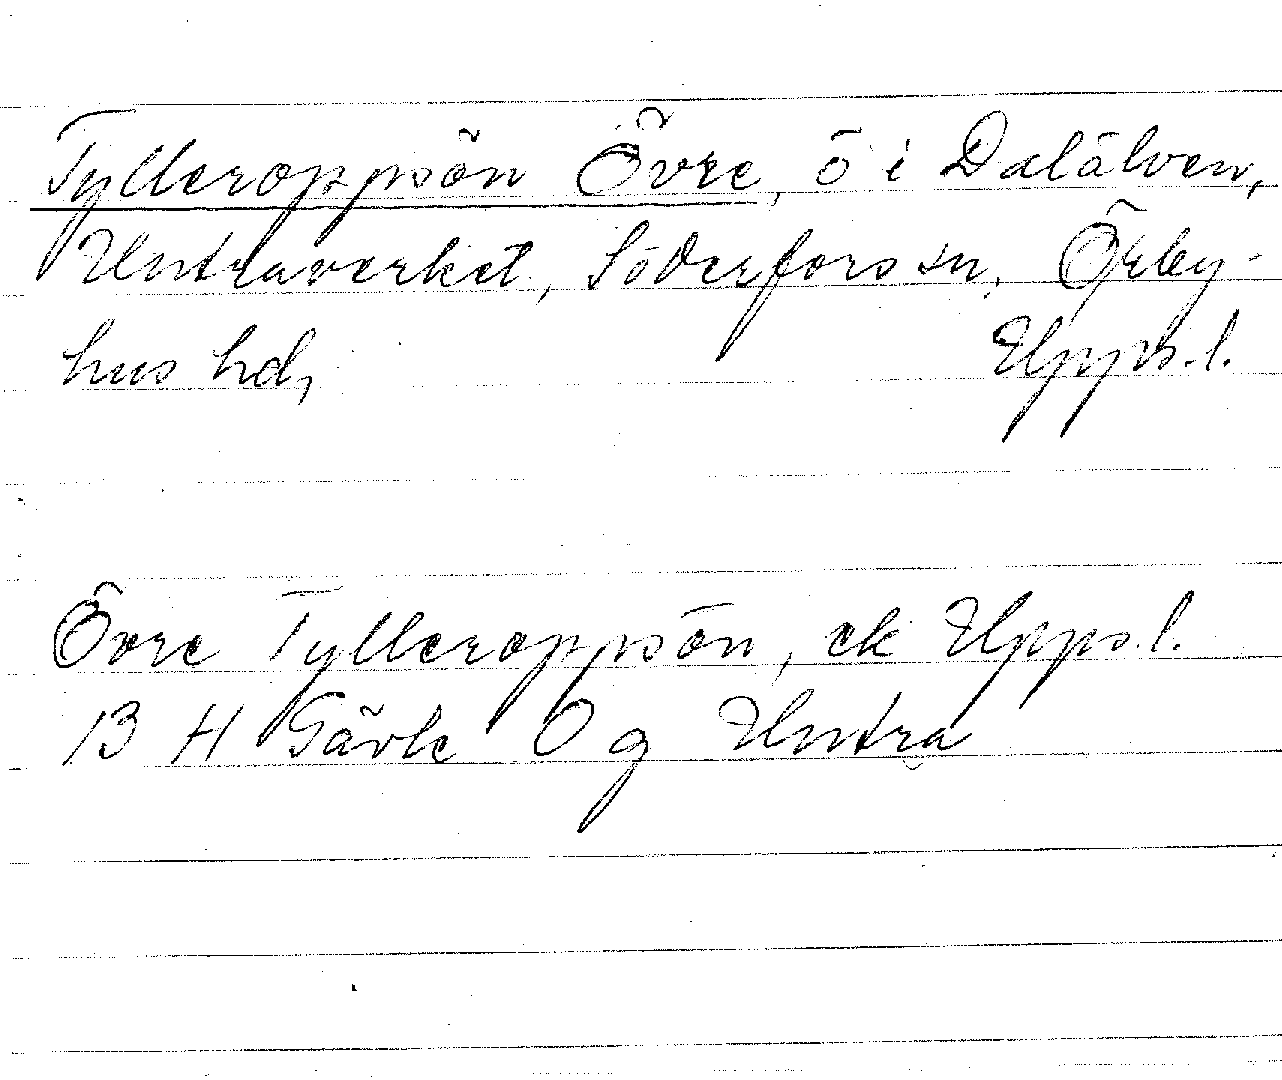 Tylleroppsön Övre, ö i Dalälven,
Untraverket, Söderfors sn, Örby-
hus hd, Upps. l.
Övre Tylleroppsön, ek Upps. l.
13 H Gävle O g Untra